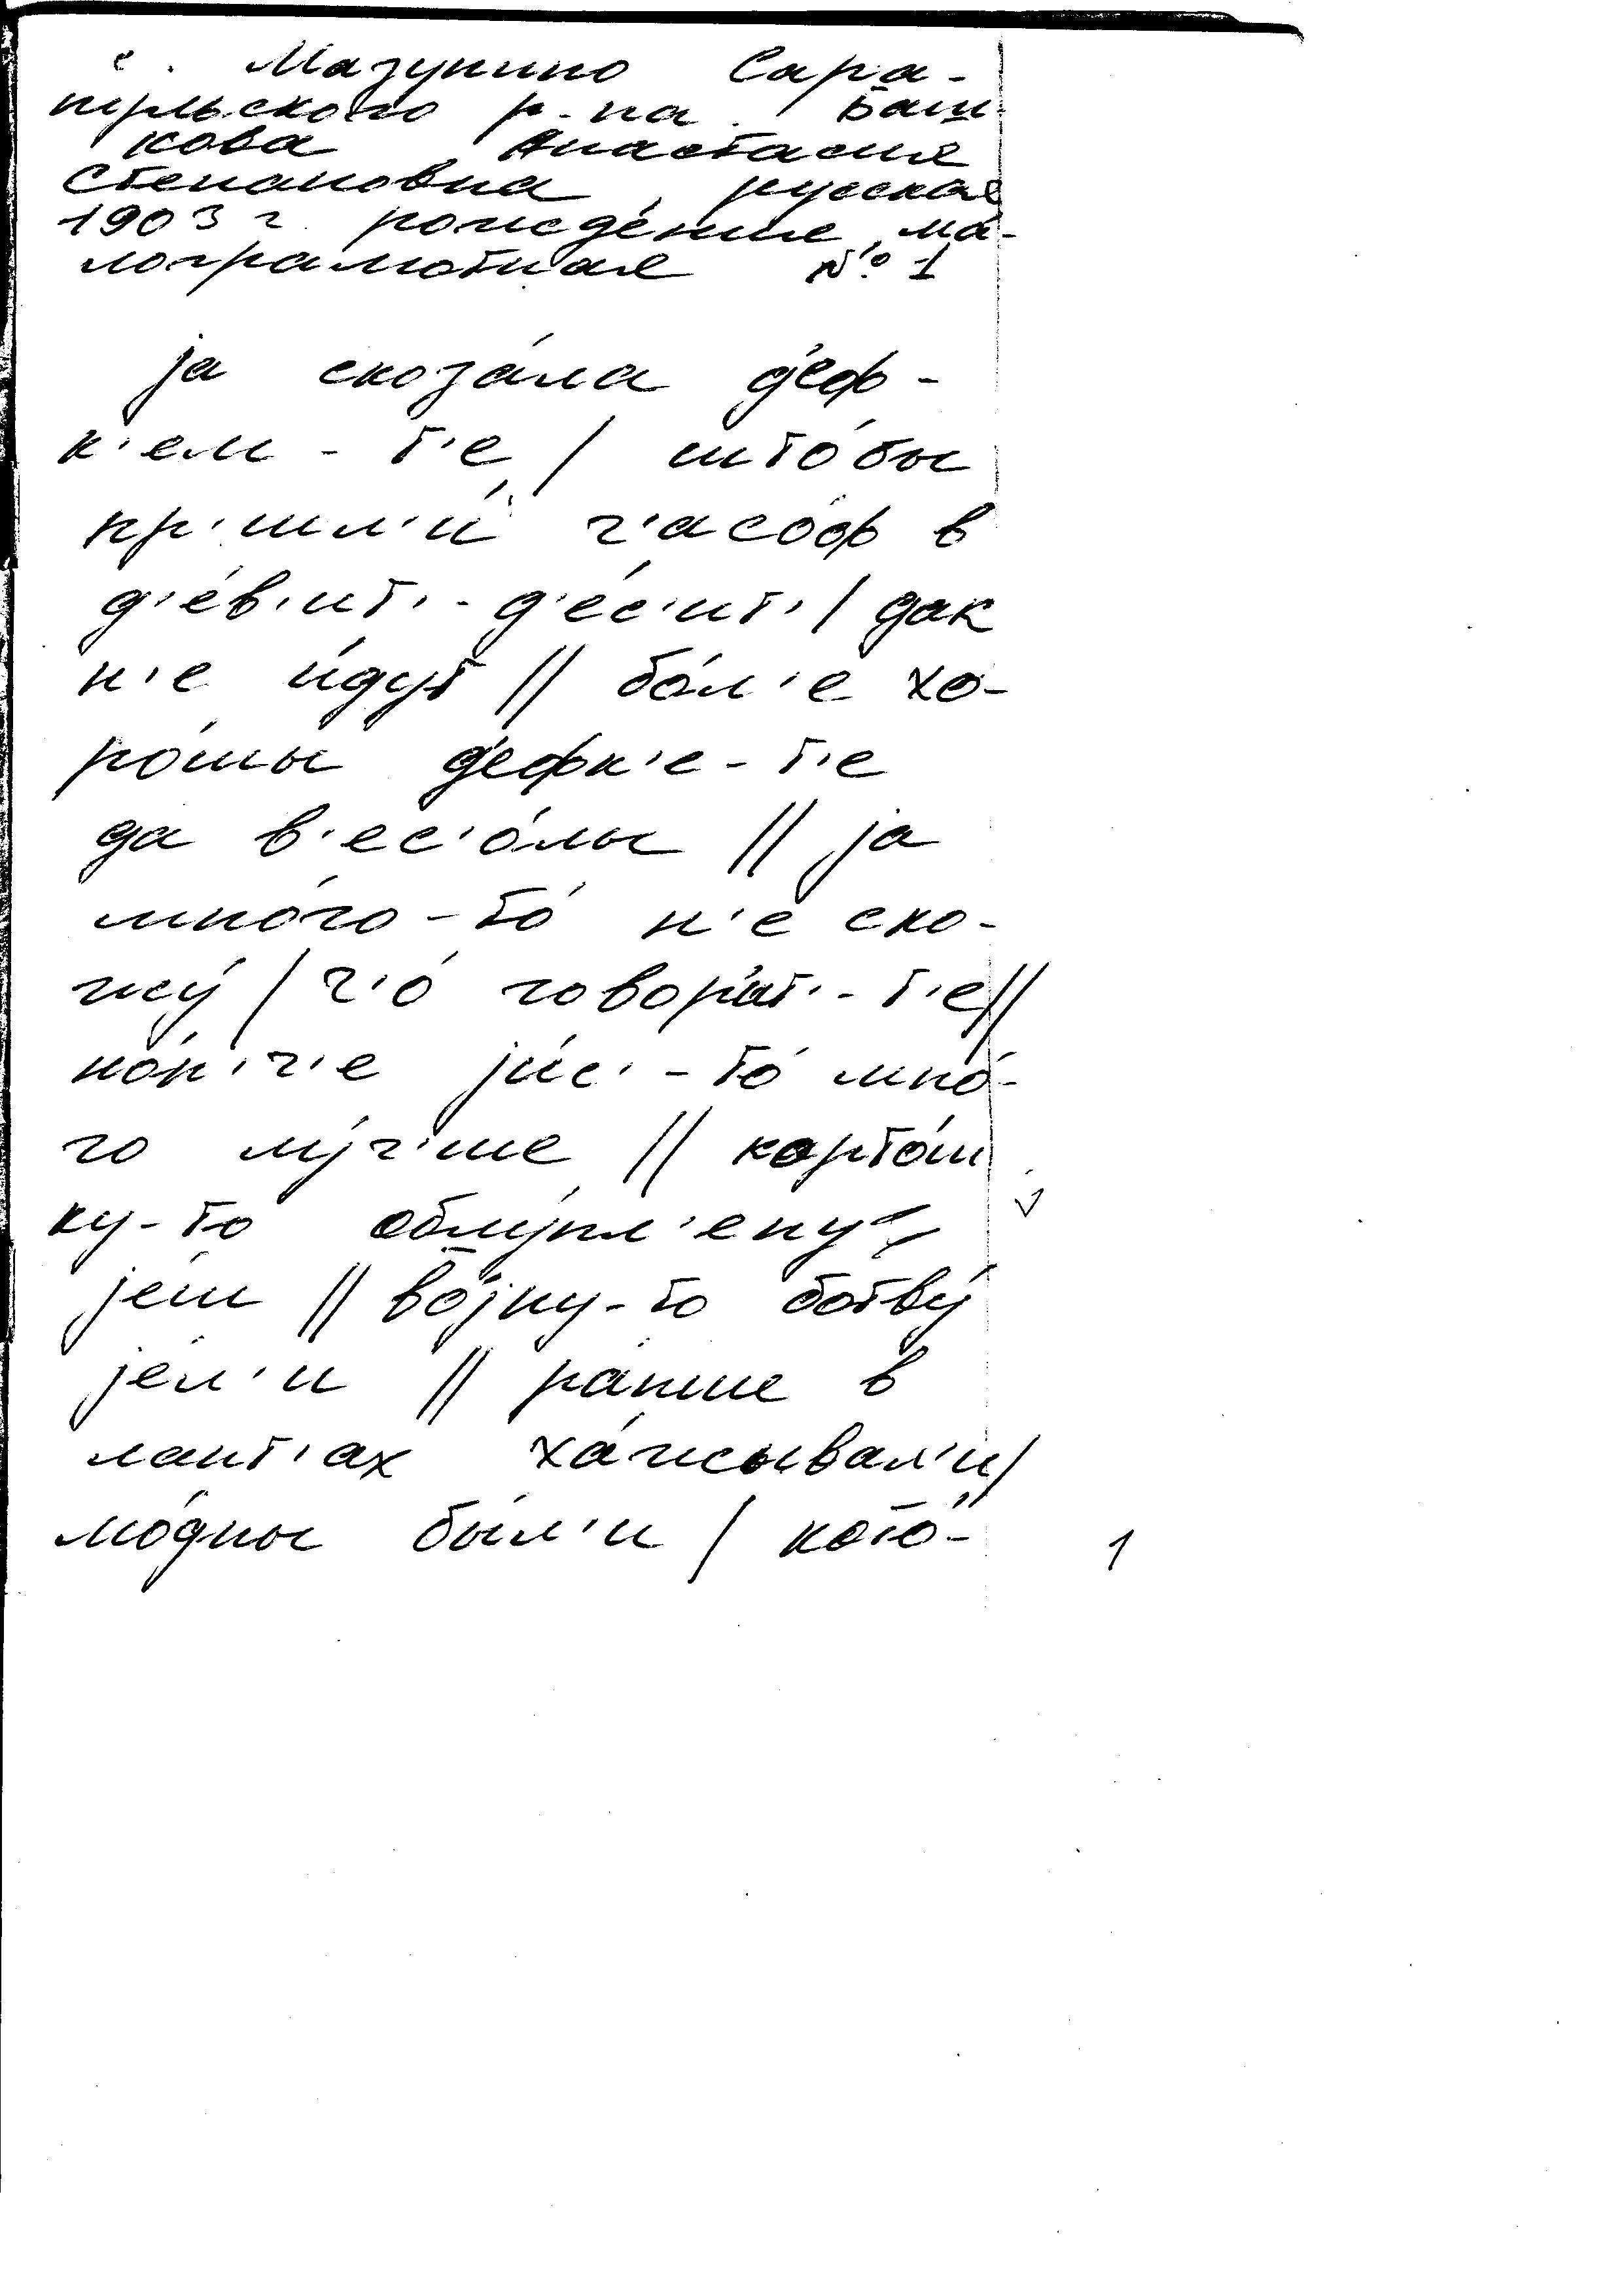 с. Мазунино Сара-
пульского р-на. Баш-
кова Анастасия
Степановна, русская
1903 г. рождения, ма-
лограмотная №1
ја сказа́ла д'еф-
к'ем-т'е / што́бы
пр'ишл'и́ ч'асо́ф в
д'е́в'ит'-д'е́с'ит' / дак
н'е иду́т // бо́л'е хо-
ро́шы д'ефк'е-т'е
да в'ес'о́лы // ја
мно́го-то́ н'е ска-
жу́ / ч'о́ говор'и́т'-т'е //
но́н'ч'е јис'-то́ мно́-
го лу́ч'ше // карто́ш
ку-то облу́пл'ену
јеш // во́јну-то ботву́
јел'и // ра́ньше в
лапт'ах ха́жывал'и /
мо́дны был'и / кото́-
1